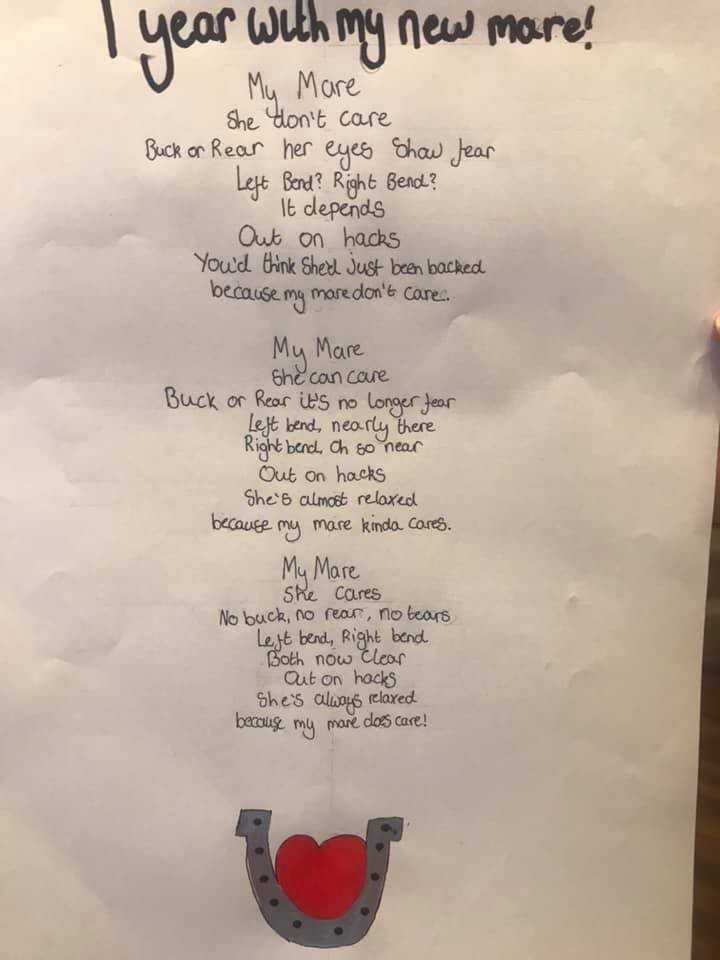 1 year with my new mare!
My Mare
She don't care
Buck or Rear her eyes show fear
Left Bend? Right Bend?
It depends
Out on hacks
You'd think She'd Just been backed
because my mare don't care..
My Mare
She can care
Buck or Rear it's no longer fear
Left bend, nearly there
Right bend, Oh so near
Out on hacks
She's almost relaxed
because my mare kinda cares.
My Mare
She cares
No buck, no rear, no tears
Left bend, Right bend
Both now Clear
Out on hacks
She's always relaxed
because my mare does care!